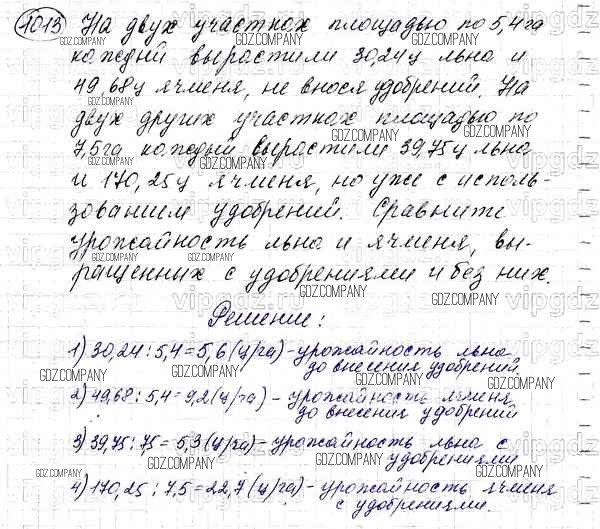 1013 На двух участках площадью по 5,4га
каждый вырастили 30,24ц льна и
49,68ц ячменя, не внося удобрений. На
двух других участках площадью по
7,5га каждый вырастили 39,75ц льна
и 170,25ц ячменя, но уже с исполь-
зованием удобрений. Сравните
урожайность льна и ячменя, вы-
ращенных с удобрениями и без них.
Решение:
1) 30,24 : 5,4 = 5,6 (ц/га) - урожайность льна
до внесения удобрений
2) 49,68 : 5,4 = 9,2 (ц/га) - урожайность ячменя
до внесения удобрений
3) 39,75 : 7,5 = 5,3 (ц/га) - урожайность льна с
удобрениями
4) 170,25 : 7,5 = 22,7 (ц/га) - урожайность ячменя
с удобрениями.
GDZ.COMPANY
vipgdz.ru